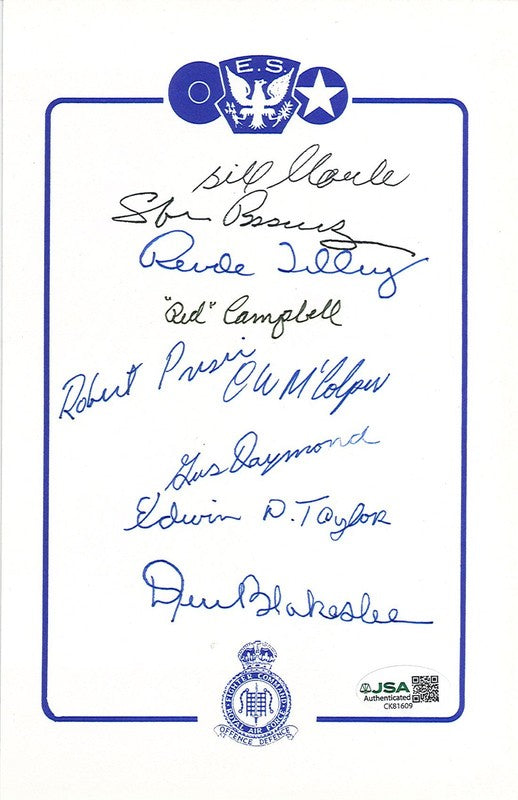 E.S.
Bill
Reade Tilley
"Red" Campbell
Robert Priser
C W McColpin
Gus Daymond
Edwin D. Taylor
Don Blakeslee
FIGHTER COMMAND
ROYAL AIR FORCE
OFFENCE DEFENCE
JSA
Authenticated
CK81609